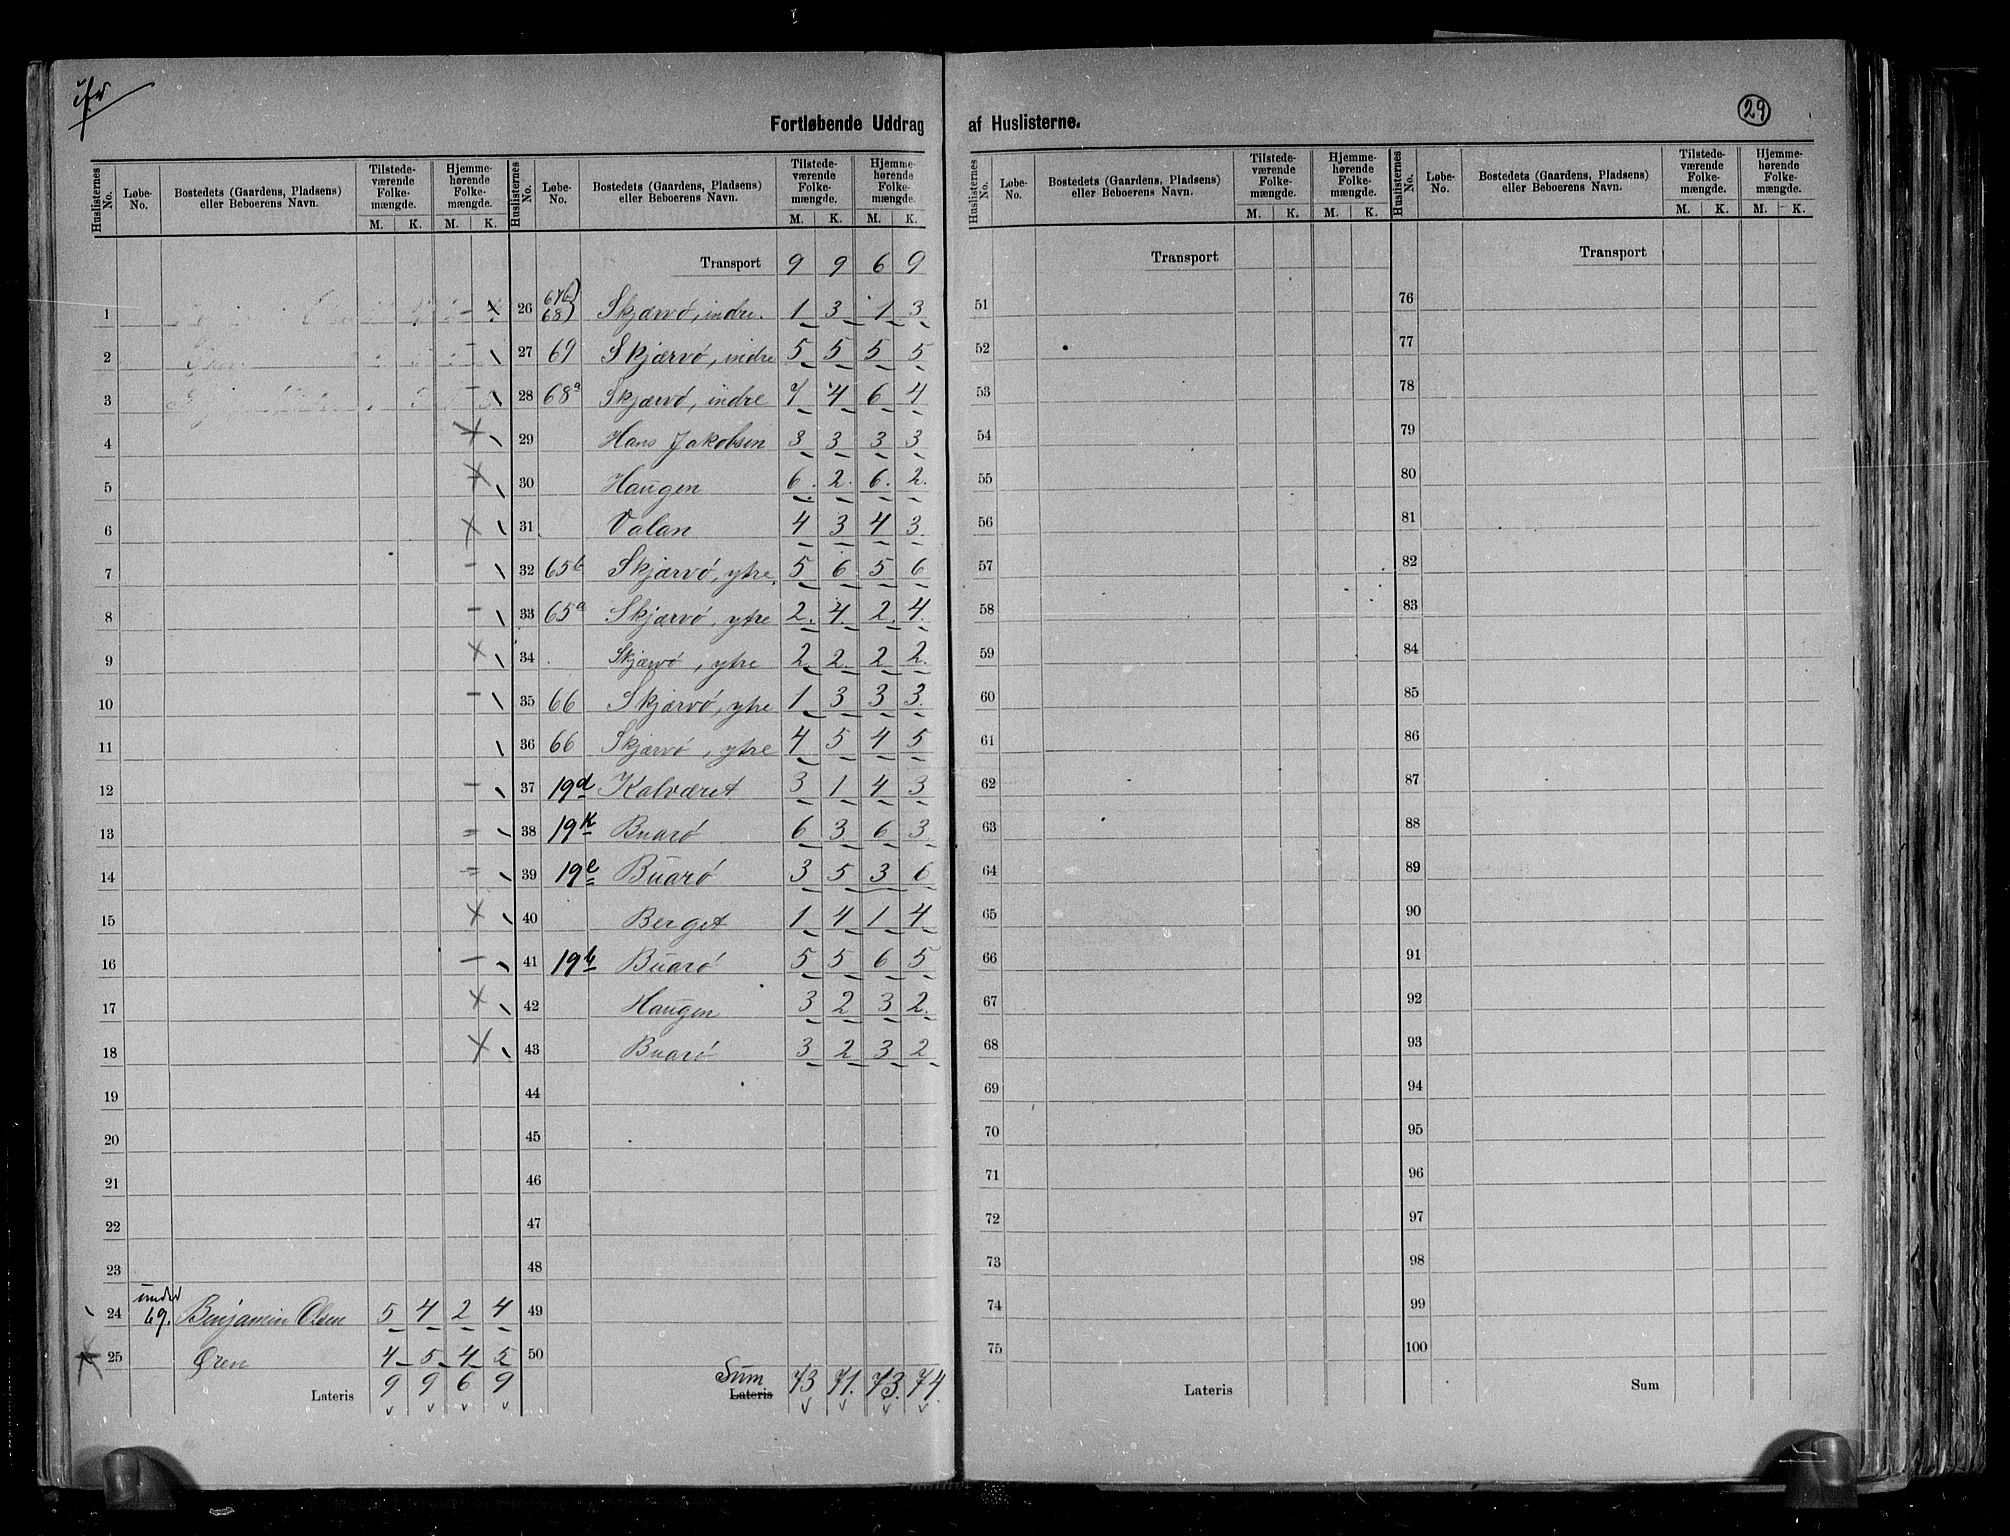 29
Fortløbende Uddrag af Huslisterne.
Huslisternes No. Løbe-No. Bostedets (Gaardens, Pladsens) eller Beboerens Navn. Tilstede-værende Folke-mængde. M. K. Hjemme-hørende Folke-mængde. M. K.
Huslisternes No. Løbe-No. Bostedets (Gaardens, Pladsens) eller Beboerens Navn. Tilstede-værende Folke-mængde. M. K. Hjemme-hørende Folke-mængde. M. K.
1
2
3
4
5
6
7
8
9
10
11
12
13
14
15
16
17
18
19
20
21
22
23
24 under 69. Benjamin Olsen 5 4 2 4
25 Øren 4 5 4 5
Lateris 9 9 6 9
Transport 9 9 6 9
26 67b) 68) Skjærvø, indre. 1 3 1 3
27 69 Skjærvø, indre 5 5 5 5
28 68a Skjærvø, indre 7 4 6 4
29 Hans Jakobsen 3 3 3 3
30 Haugen 6. 2. 6. 2.
31 Valan 4 3 4 3
32 65b Skjærvø, ytre. 5 6 5 6
33 65a Skjærvø, ytre 2. 4. 2. 4.
34 Skjærvø, ytre 2 2 2 2
35 66 Skjærvø, ytre 1 3 3 3
36 66 Skjærvø, ytre 4 5 4 5
37 19d Kalværet 3 1 4 3
38 19k Buarø 6 3 6 3
39 19e Buarø 3 5 3 6
40 Berget 1 4 1 4
41 19h Buarø 5 5 6 5
42 Haugen 3 2 3 2
43 Buarø 3 2 3 2
44
45
46
47
48
49
50
Sum Lateris 73 71. 73. 74.
Huslisternes No. Løbe-No. Bostedets (Gaardens, Pladsens) eller Beboerens Navn. Tilstede-værende Folke-mængde. M. K. Hjemme-hørende Folke-mængde. M. K.
Huslisternes No. Løbe-No. Bostedets (Gaardens, Pladsens) eller Beboerens Navn. Tilstede-værende Folke-mængde. M. K. Hjemme-hørende Folke-mængde. M. K.
Transport
51
52
53
54
55
56
57
58
59
60
61
62
63
64
65
66
67
68
69
70
71
72
73
74
75
Lateris
Transport
76
77
78
79
80
81
82
83
84
85
86
87
88
89
90
91
92
93
94
95
96
97
98
99
100
Sum